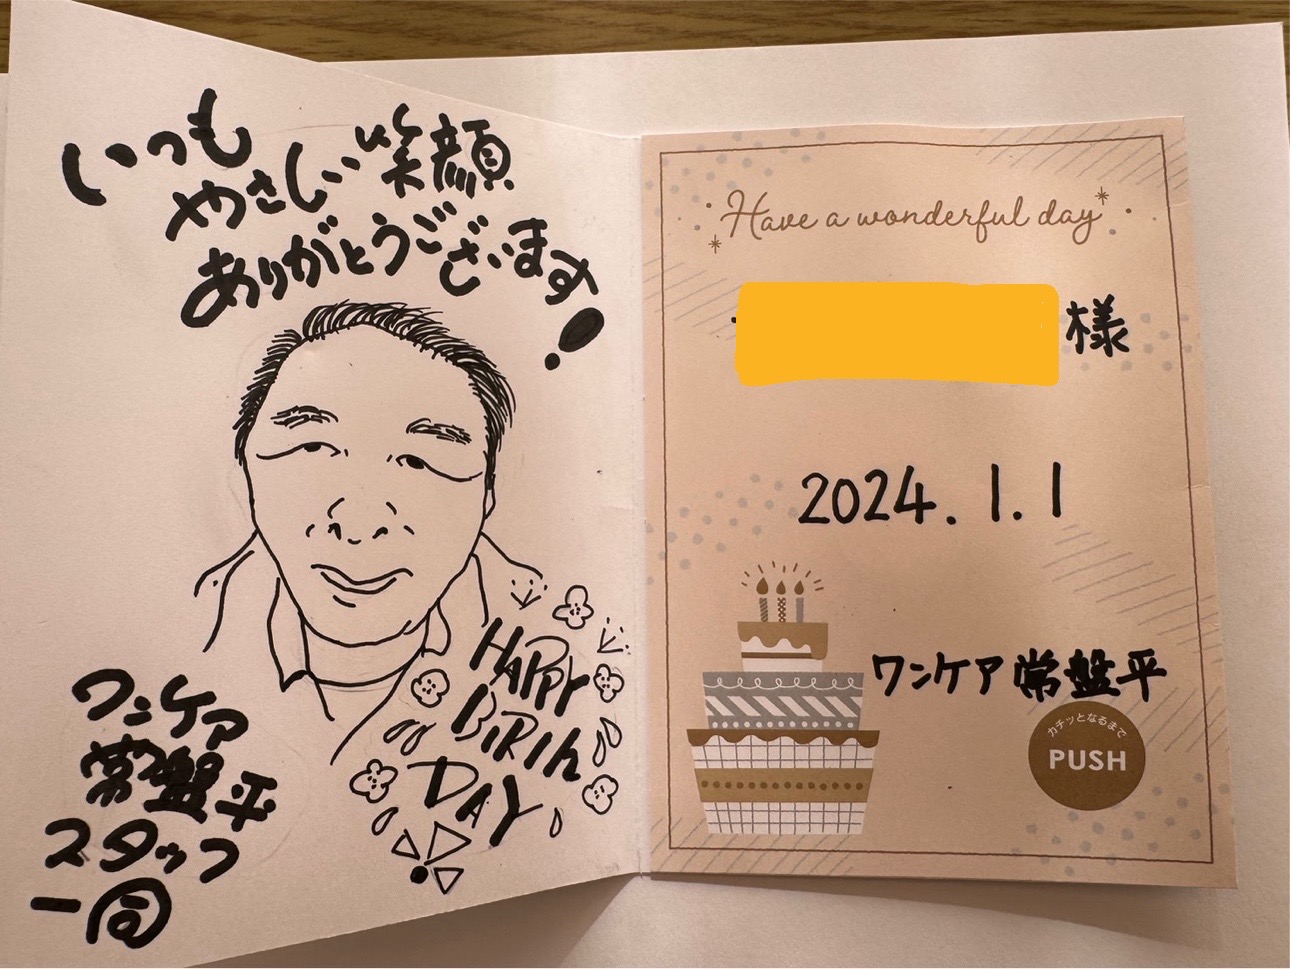 いつも
やさしい笑顔
ありがとうございます!
HAPPY
BIRTH
DAY
ワンケア
常盤平
スタッフ
一同
Have a wonderful day
様
2024.1.1
ワンケア常盤平
カチッとなるまで
PUSH